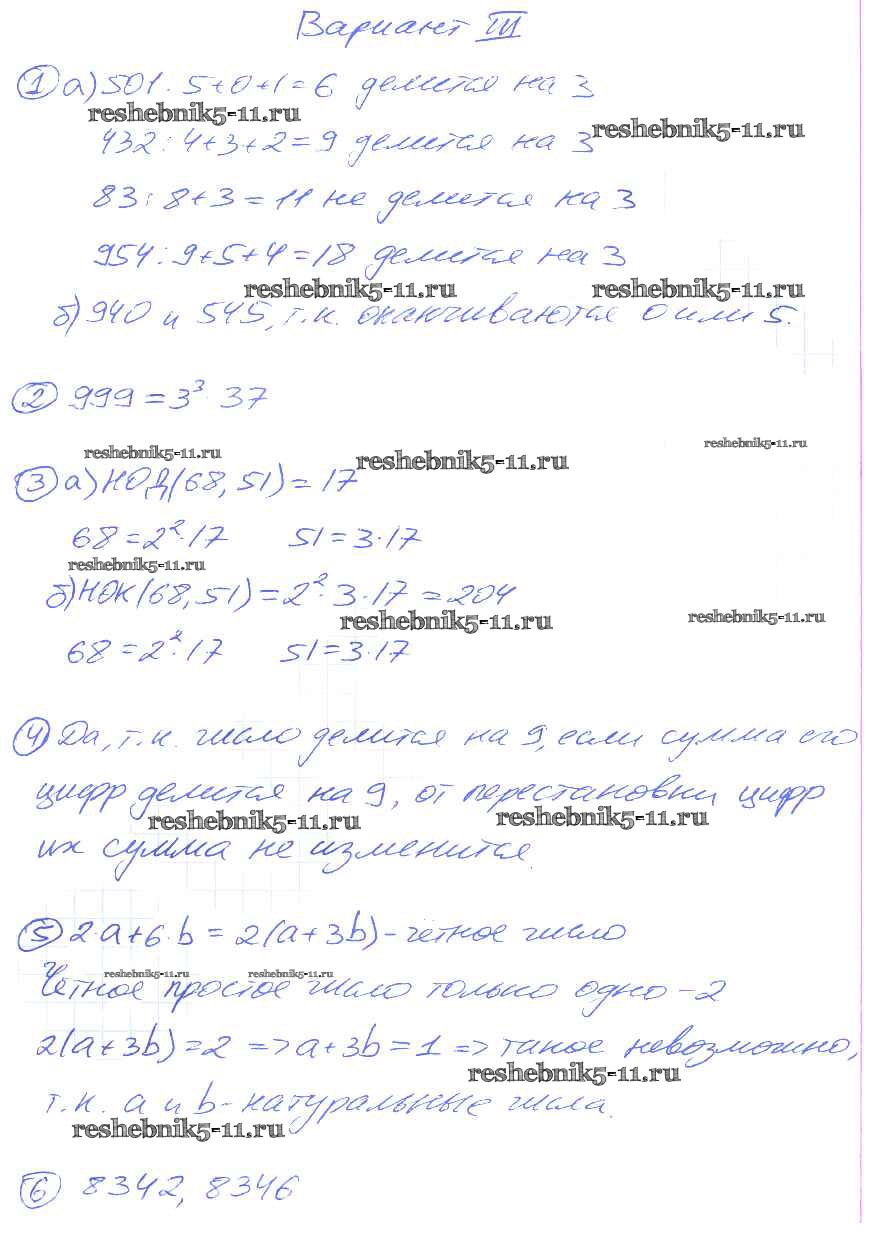 Вариант III
① а) 501. 5+0+1=6 делится на 3
reshebnik5-11.ru
reshebnik5-11.ru
432: 4+3+2=9 делится на 3
83: 8+3=11 не делится на 3
954: 9+5+4=18 делится на 3
reshebnik5-11.ru reshebnik5-11.ru
б) 940 и 545, т.к. оканчиваются 0 или 5.
② 999 = 3³·37
reshebnik5-11.ru reshebnik5-11.ru reshebnik5-11.ru
③ а) НОД(68, 51) = 17
68 = 2²·17 51 = 3·17
reshebnik5-11.ru
б) НОК(68, 51) = 2²·3·17 = 204
reshebnik5-11.ru reshebnik5-11.ru
68 = 2²·17 51 = 3·17
④ Да, т.к. число делится на 9, если сумма его
цифр делится на 9, от перестановки цифр
reshebnik5-11.ru reshebnik5-11.ru
их сумма не изменится.
⑤ 2·a+6·b = 2(a+3b) - четное число
reshebnik5-11.ru reshebnik5-11.ru
Четное простое число только одно - 2
2(a+3b)=2 => a+3b=1 => такое невозможно,
reshebnik5-11.ru
т.к. a и b - натуральные числа.
reshebnik5-11.ru
⑥ 8342, 8346